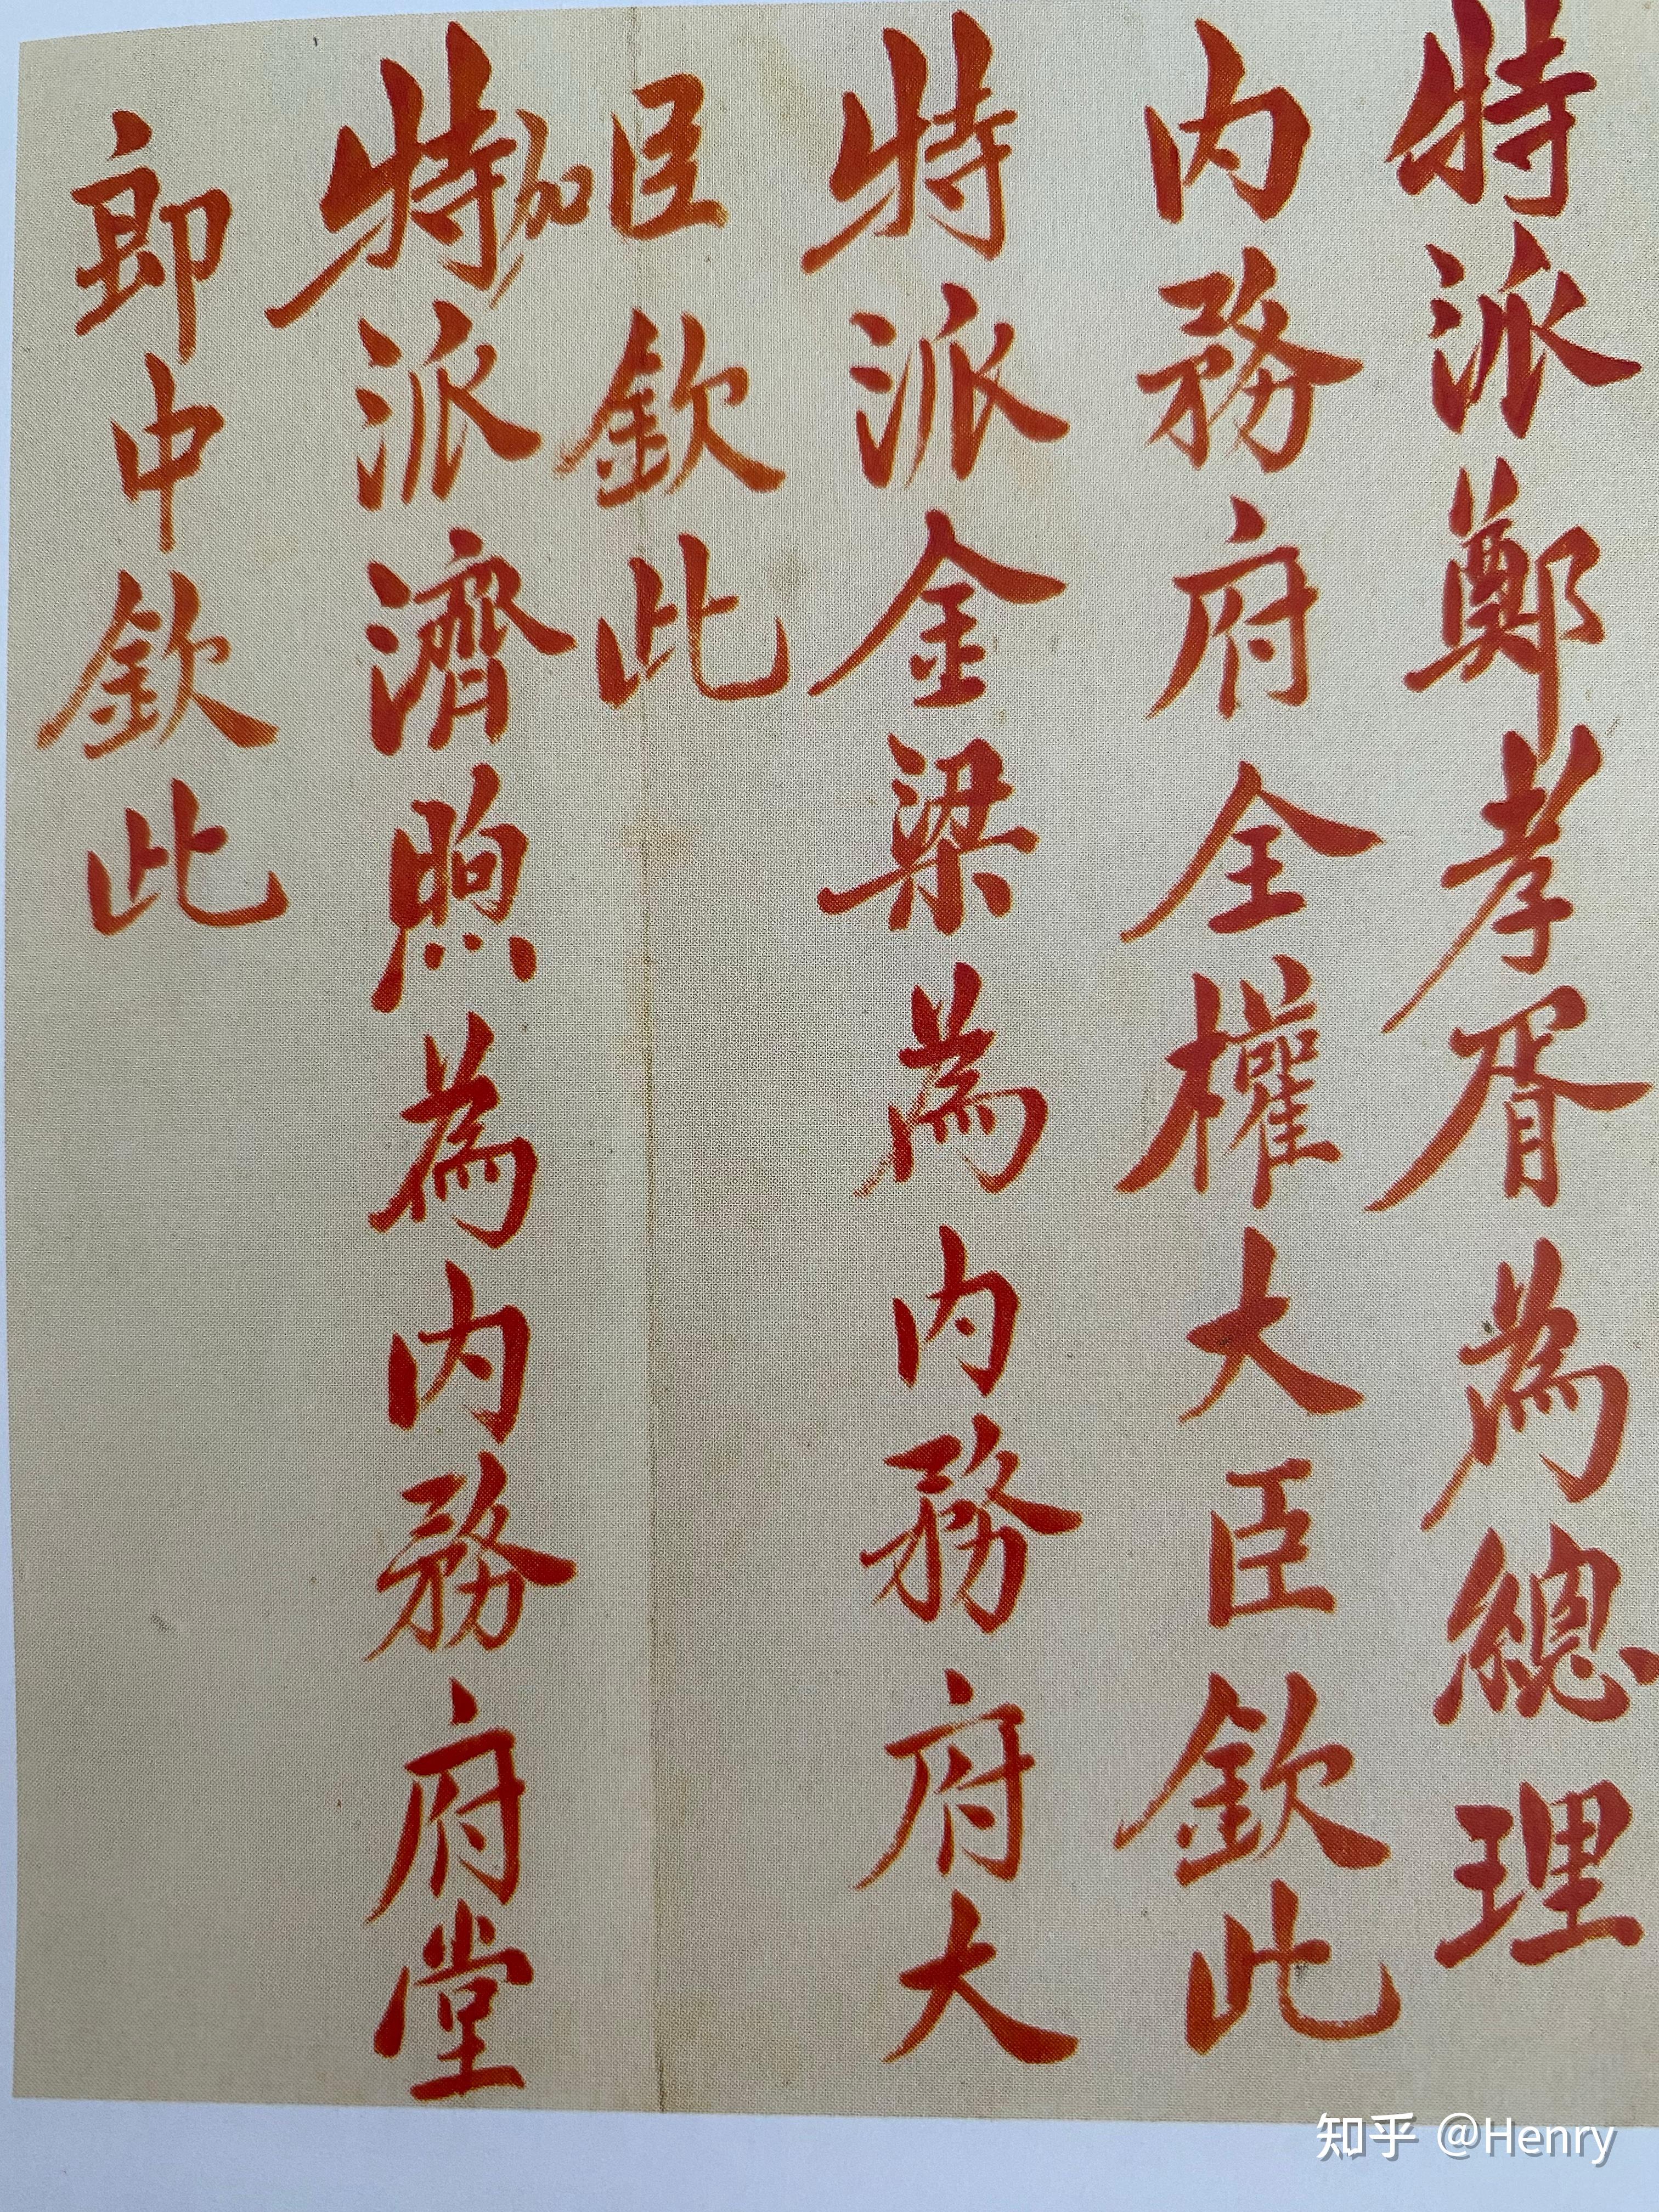 特派鄭孝胥為總理
内務府全權大臣欽此
特派金梁為内務府大
臣欽此
加
特派濟煦為内務府堂
郎中欽此
知乎 @Henry